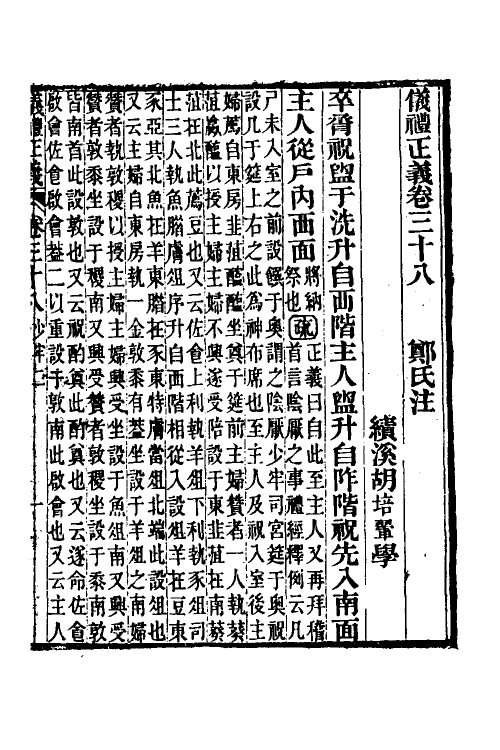 儀禮正義卷三十八　鄭氏注
績溪胡培翬學
卒脀祝盥于洗升自西階主人盥升自阼階祝先入南面
主人從戶內西面
將納
祭也
疏
正義曰自此至主人又再拜稽
首言陰厭之事禮經釋例云凡
尸未入室之前設饌于奧謂之陰厭少牢司宮筵于奧祝
設几于筵上右之此為神布席也至主人及祝入室後主
婦薦自東房韭菹醓醢坐奠于筵前主婦贊者一人執葵
菹蠃醢以授主婦主婦不興遂受陪設于東韭菹在南葵
菹在北此薦豆也又云佐食上利執羊俎下利執豕俎司
士三人執魚腊膚俎序升自西階相從入設俎羊在豆東
豕亞其北魚在羊東腊在豕東特膚當俎北端此設俎也
又云主婦自東房執一金敦黍有蓋坐設于羊俎之南婦
贊者執敦稷以授主婦主婦興受坐設于魚俎南又興受
贊者敦黍坐設于稷南又興受贊者敦稷坐設于黍南敦
皆南首此設敦也又云祝酌奠此酌奠也又云遂命佐食
啟會佐食啟會蓋二以重設于敦南此啟會也又云主人
儀禮正義　卷三十八少牢二　一